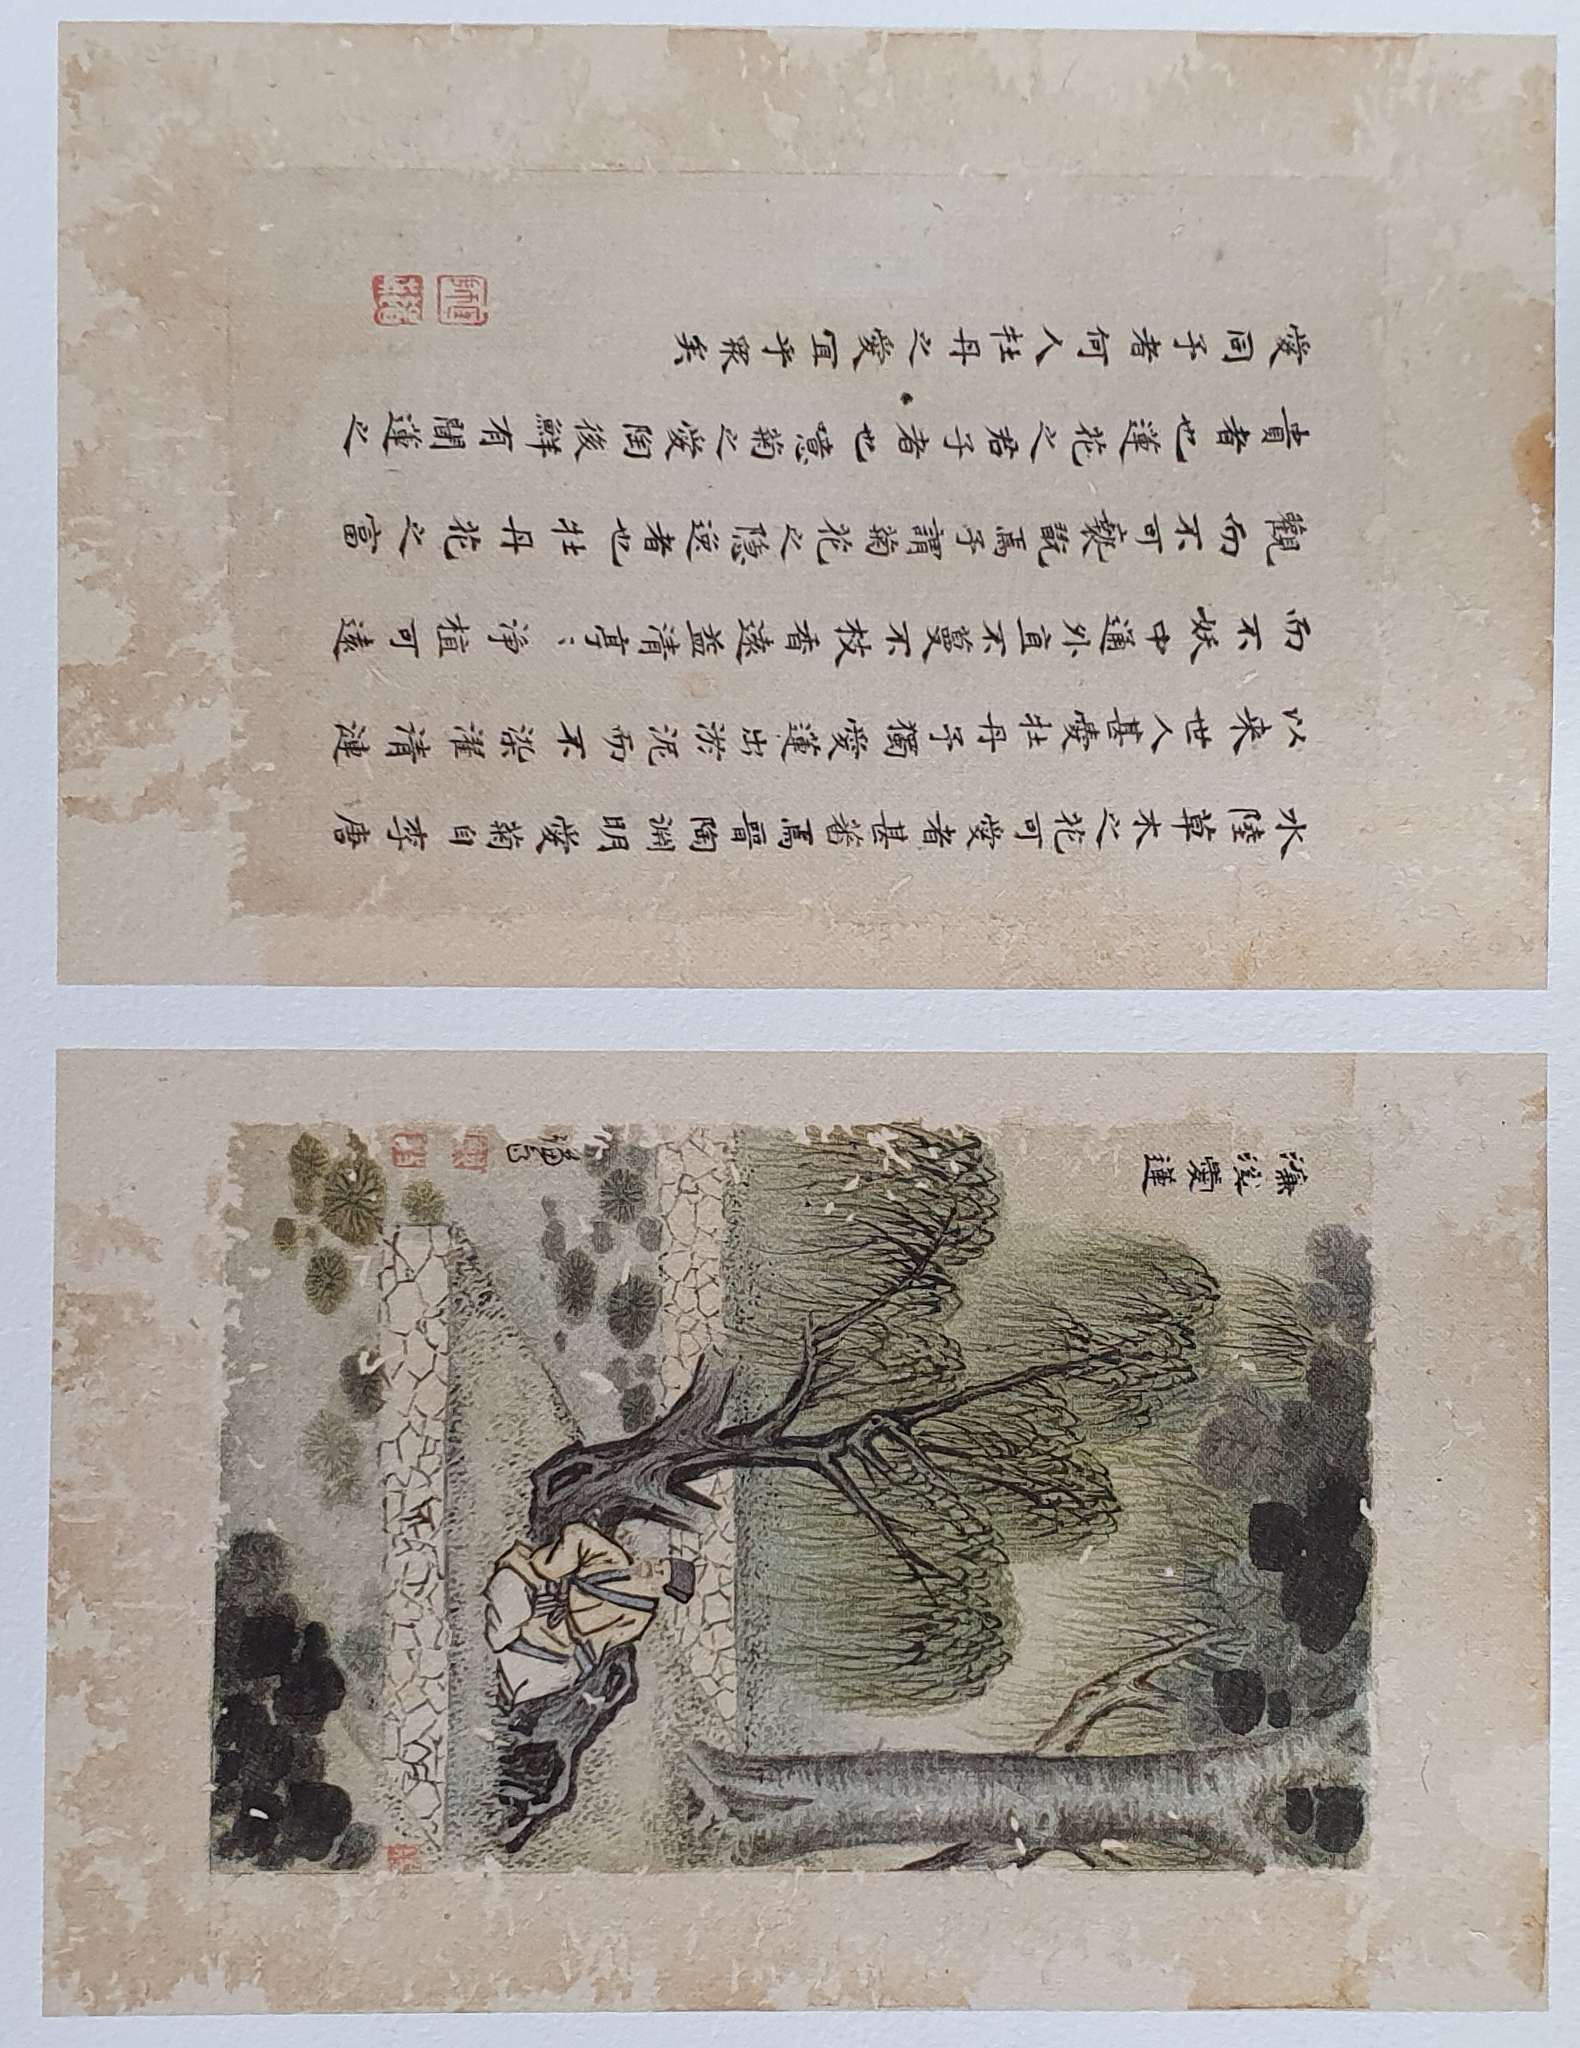 水陸草木之花可愛者甚蕃焉晉陶淵明愛菊自李唐
以来世人甚愛牡丹予獨愛蓮出淤泥而不染濯清漣
而不妖中通外直不蔓不枝香遠益清亭〻淨植可遠
觀而不可褻翫焉予謂菊花之隠逸者也牡丹花之富
貴者也蓮花之君子者也噫菊之愛陶後鮮有聞蓮之
愛同予者何人牡丹之愛宜乎眾矣
濂溪
愛蓮